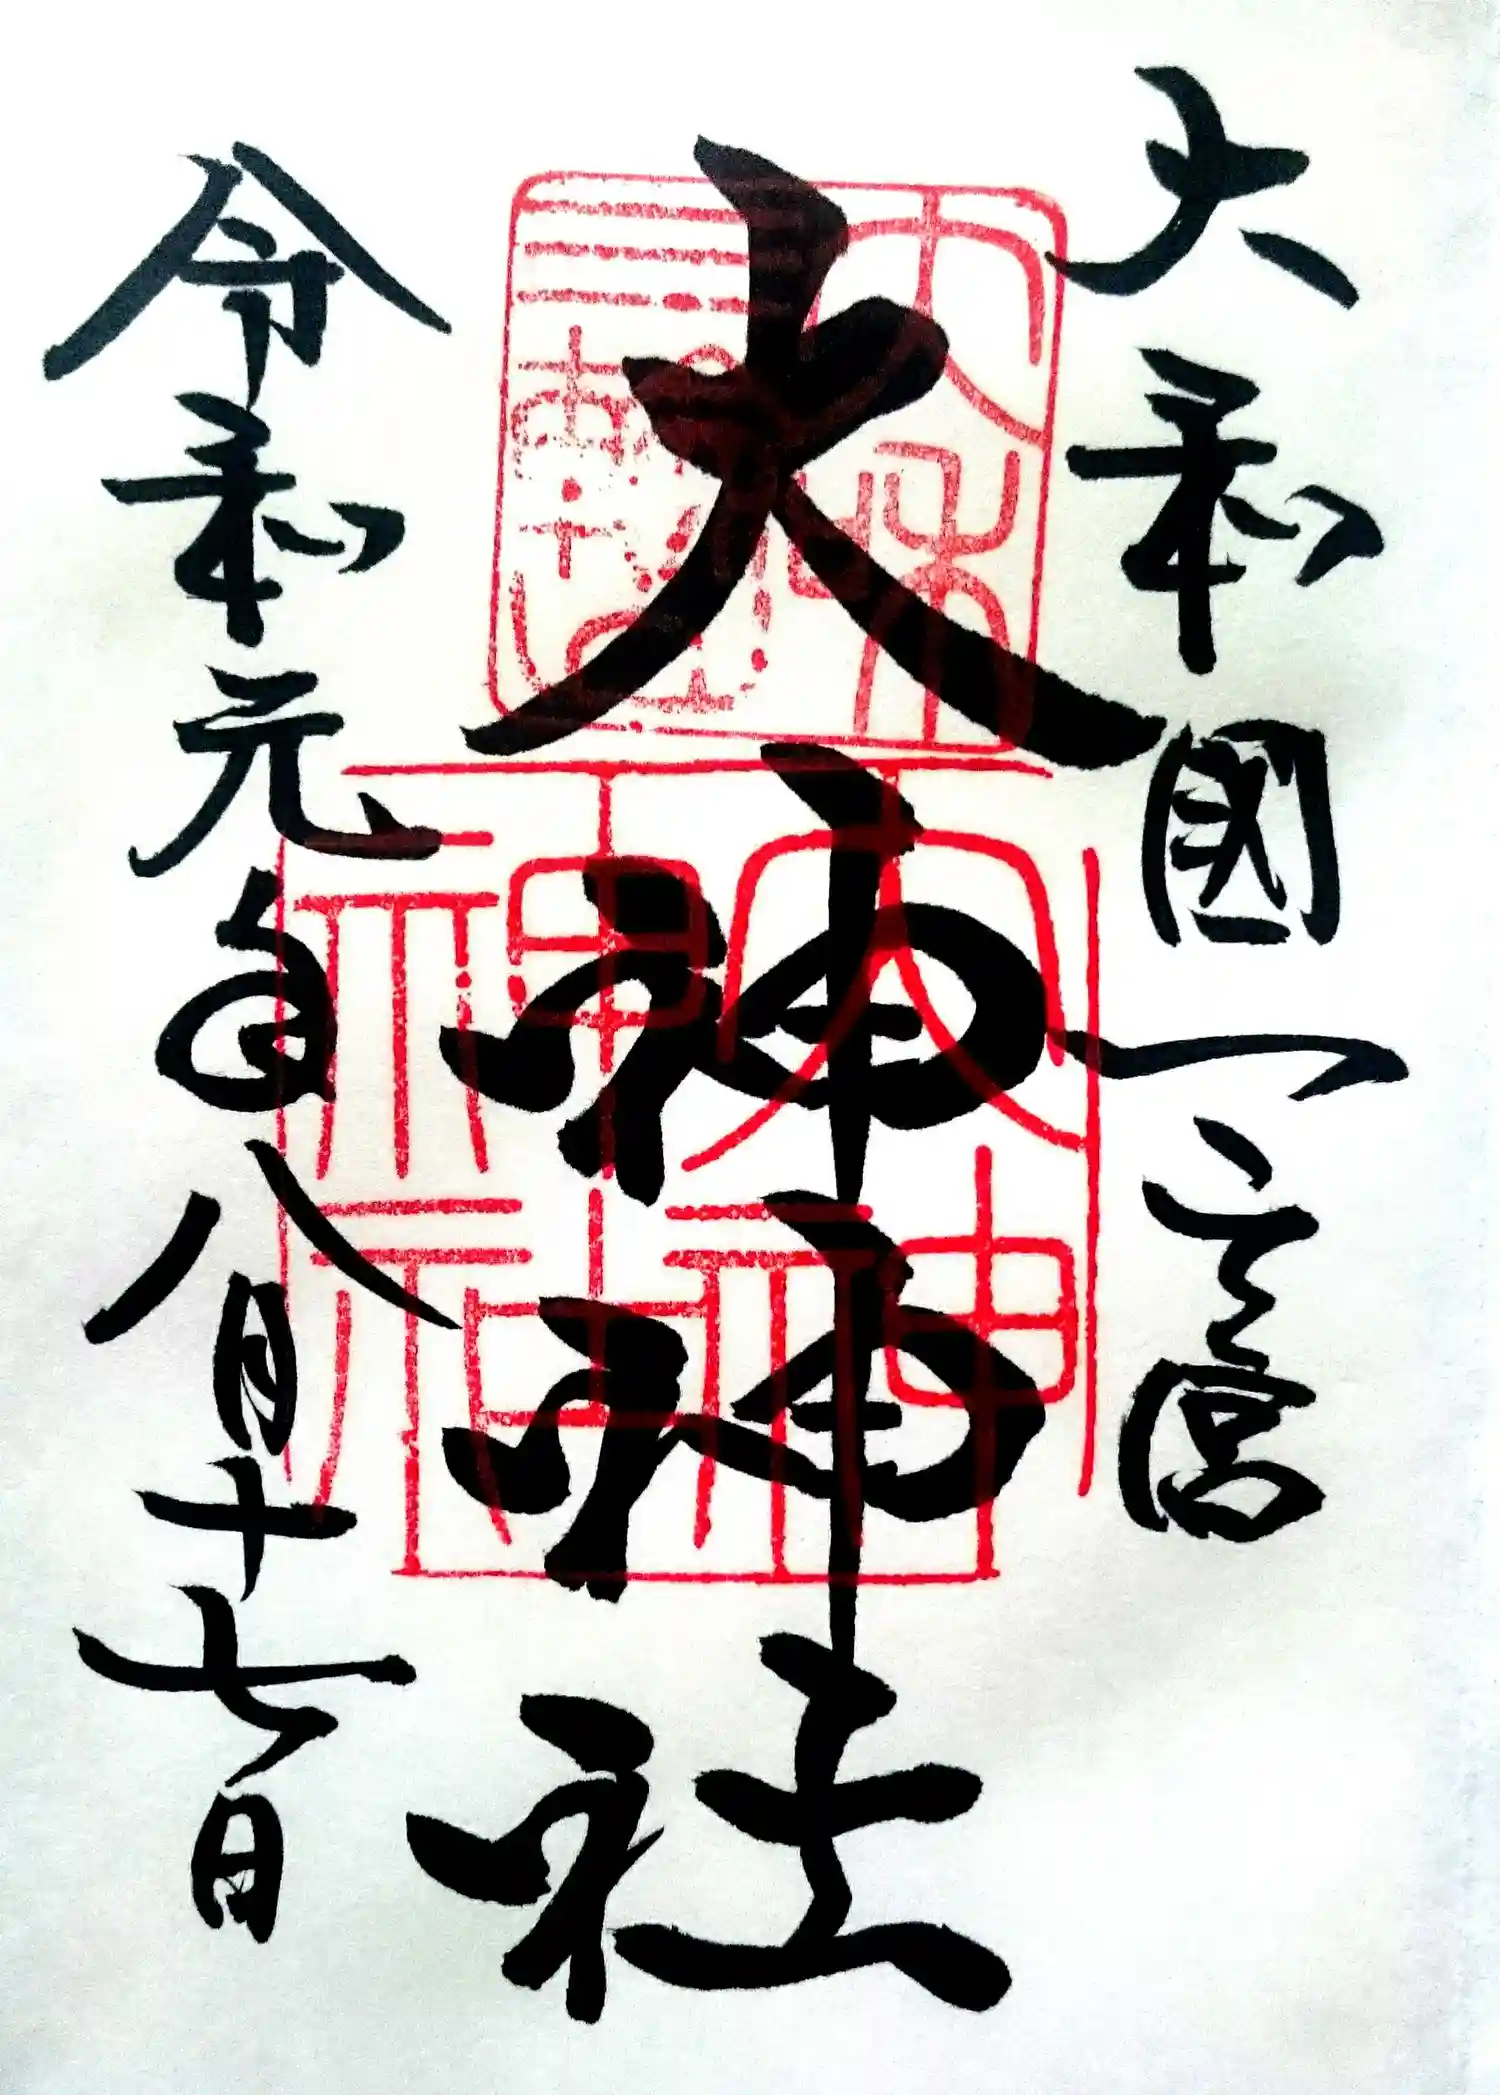 大和國一之宮
大神神社
令和元年八月十七日
大神
神社